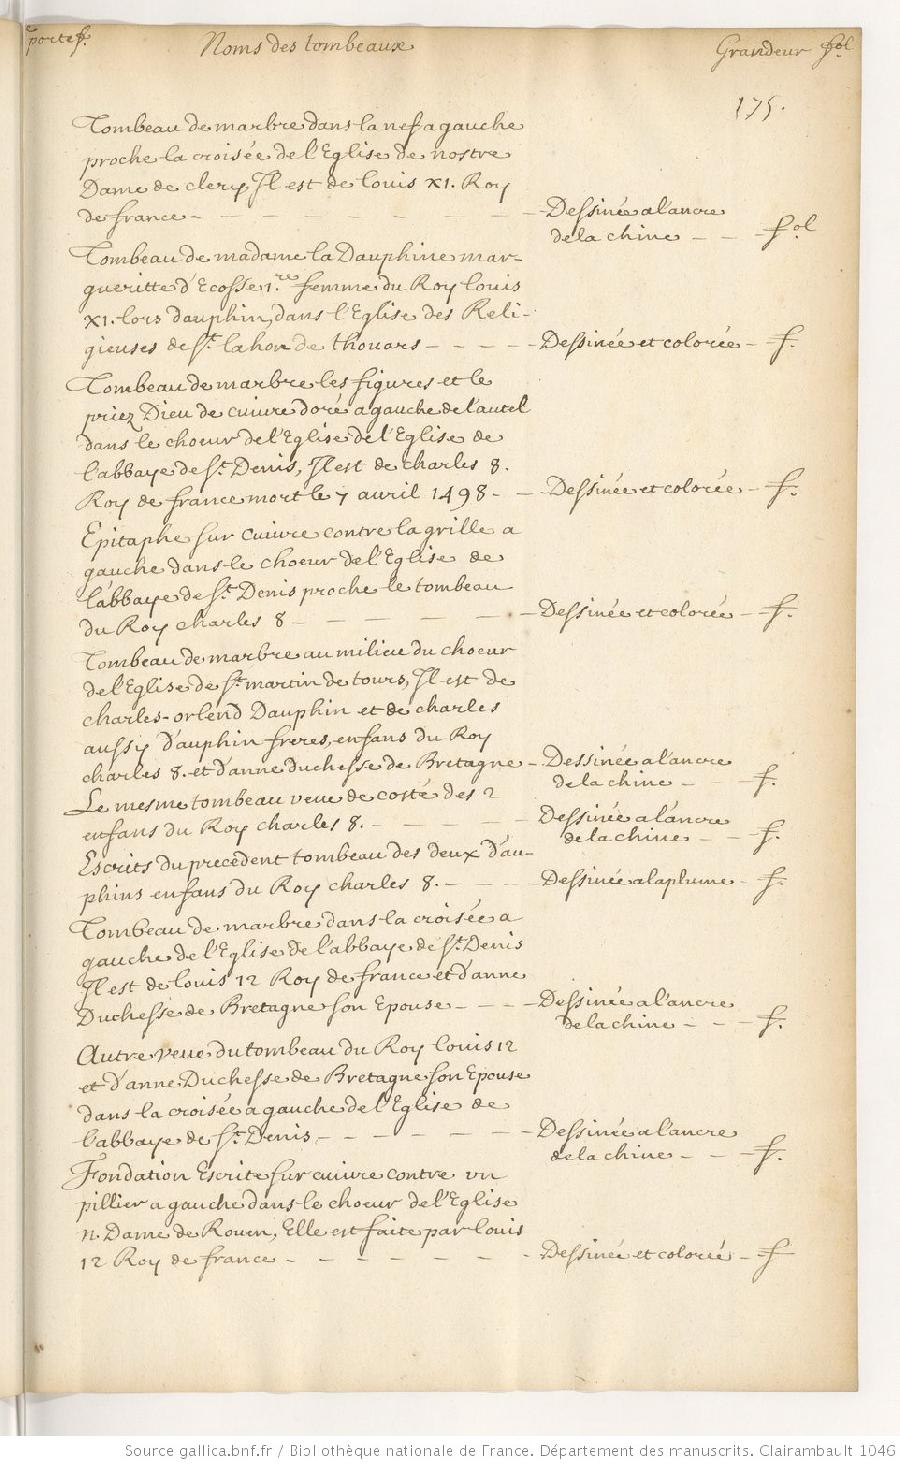 portef. Noms des tombeaux Grandeur fol
175.
Tombeau de marbre dans la nef a gauche
proche la croisée de l'Eglise de nostre
Dame de clery, Il est de louis XI. Roy
de france - - - - - - - Dessinée a l'ancre
de la chine - - - fol
Tombeau de madame la Dauphine mar-
gueritte d'Ecosse 1.re femme du Roy louis
XI. lors dauphin, dans l'Eglise des Reli-
gieuses de St. lahon de thouars - - - - - Dessinée et colorée - f.
Tombeau de marbre les figures et le
priez Dieu de cuivre doré a gauche de l'autel
dans le choeur de l'Eglise de l'Eglise de
l'abbaye de St. Denis, Il est de charles 8.
Roy de france mort le 7 avril 1498 - - Dessinée et colorée - f.
Epitaphe sur cuivre contre la grille a
gauche dans le choeur de l'Eglise de
l'abbaye de St. Denis proche le tombeau
du Roy charles 8 - - - - - - Dessinée et colorée - f.
Tombeau de marbre au milieu du choeur
de l'Eglise de St. martin de tours, Il est de
charles-orlend Dauphin et de charles
aussy d'auphin freres, enfans du Roy
charles 8. et d'anne duchesse de Bretagne - Dessinée a l'ancre
de la chine - - f.
Le mesme tombeau veue de costé des 2
enfans du Roy charles 8. - - - - - Dessinée a l'ancre
de la chine - - f.
Escrits du precedent tombeau des deux d'au-
phins enfans du Roy charles 8. - - - Dessinée a la plume - f.
Tombeau de marbre dans la croisée a
gauche de l'Eglise de l'abbaye de St. Denis
Il est de louis 12 Roy de france et d'anne
Duchesse de Bretagne son Epouse - - - - Dessinée a l'ancre
de la chine - - - f.
Autre veue du tombeau du Roy louis 12
et d'anne Duchesse de Bretagne son Epouse
dans la croisée a gauche de l'Eglise de
l'abbaye de St. Denis - - - - - - Dessinée a l'ancre
de la chine - - - f.
Fondation Escrite sur cuivre contre un
pillier a gauche dans le choeur de l'Eglise
n. Dame de Rouen, Elle est faite par louis
12 Roy de france - - - - - - Dessinée et colorié - f
Source gallica.bnf.fr / Bibliothèque nationale de France. Département des manuscrits. Clairambault 1046